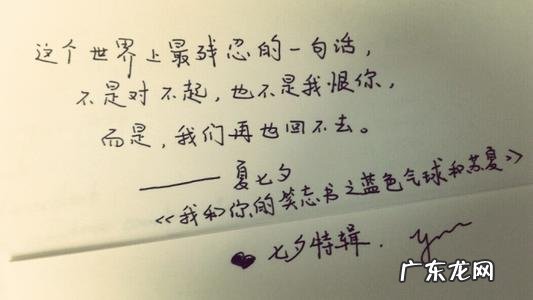 这个世界上最残忍的一句话，
不是对不起，也不是我恨你，
而是，我们再也回不去。
—— 夏七夕
《我和你的笑忘书之蓝色气球和苏夏》
七夕特辑.
广东龙网